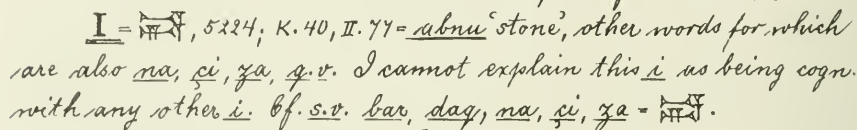 I = 𒉌𒌓, 5224; K. 40, II. 77 = abnu 'stone', other words for which
are also na, çi, za, q.v. I cannot explain this i as being cogn.
with any other i. Cf. s.v. bar, dag, na, çi, za =